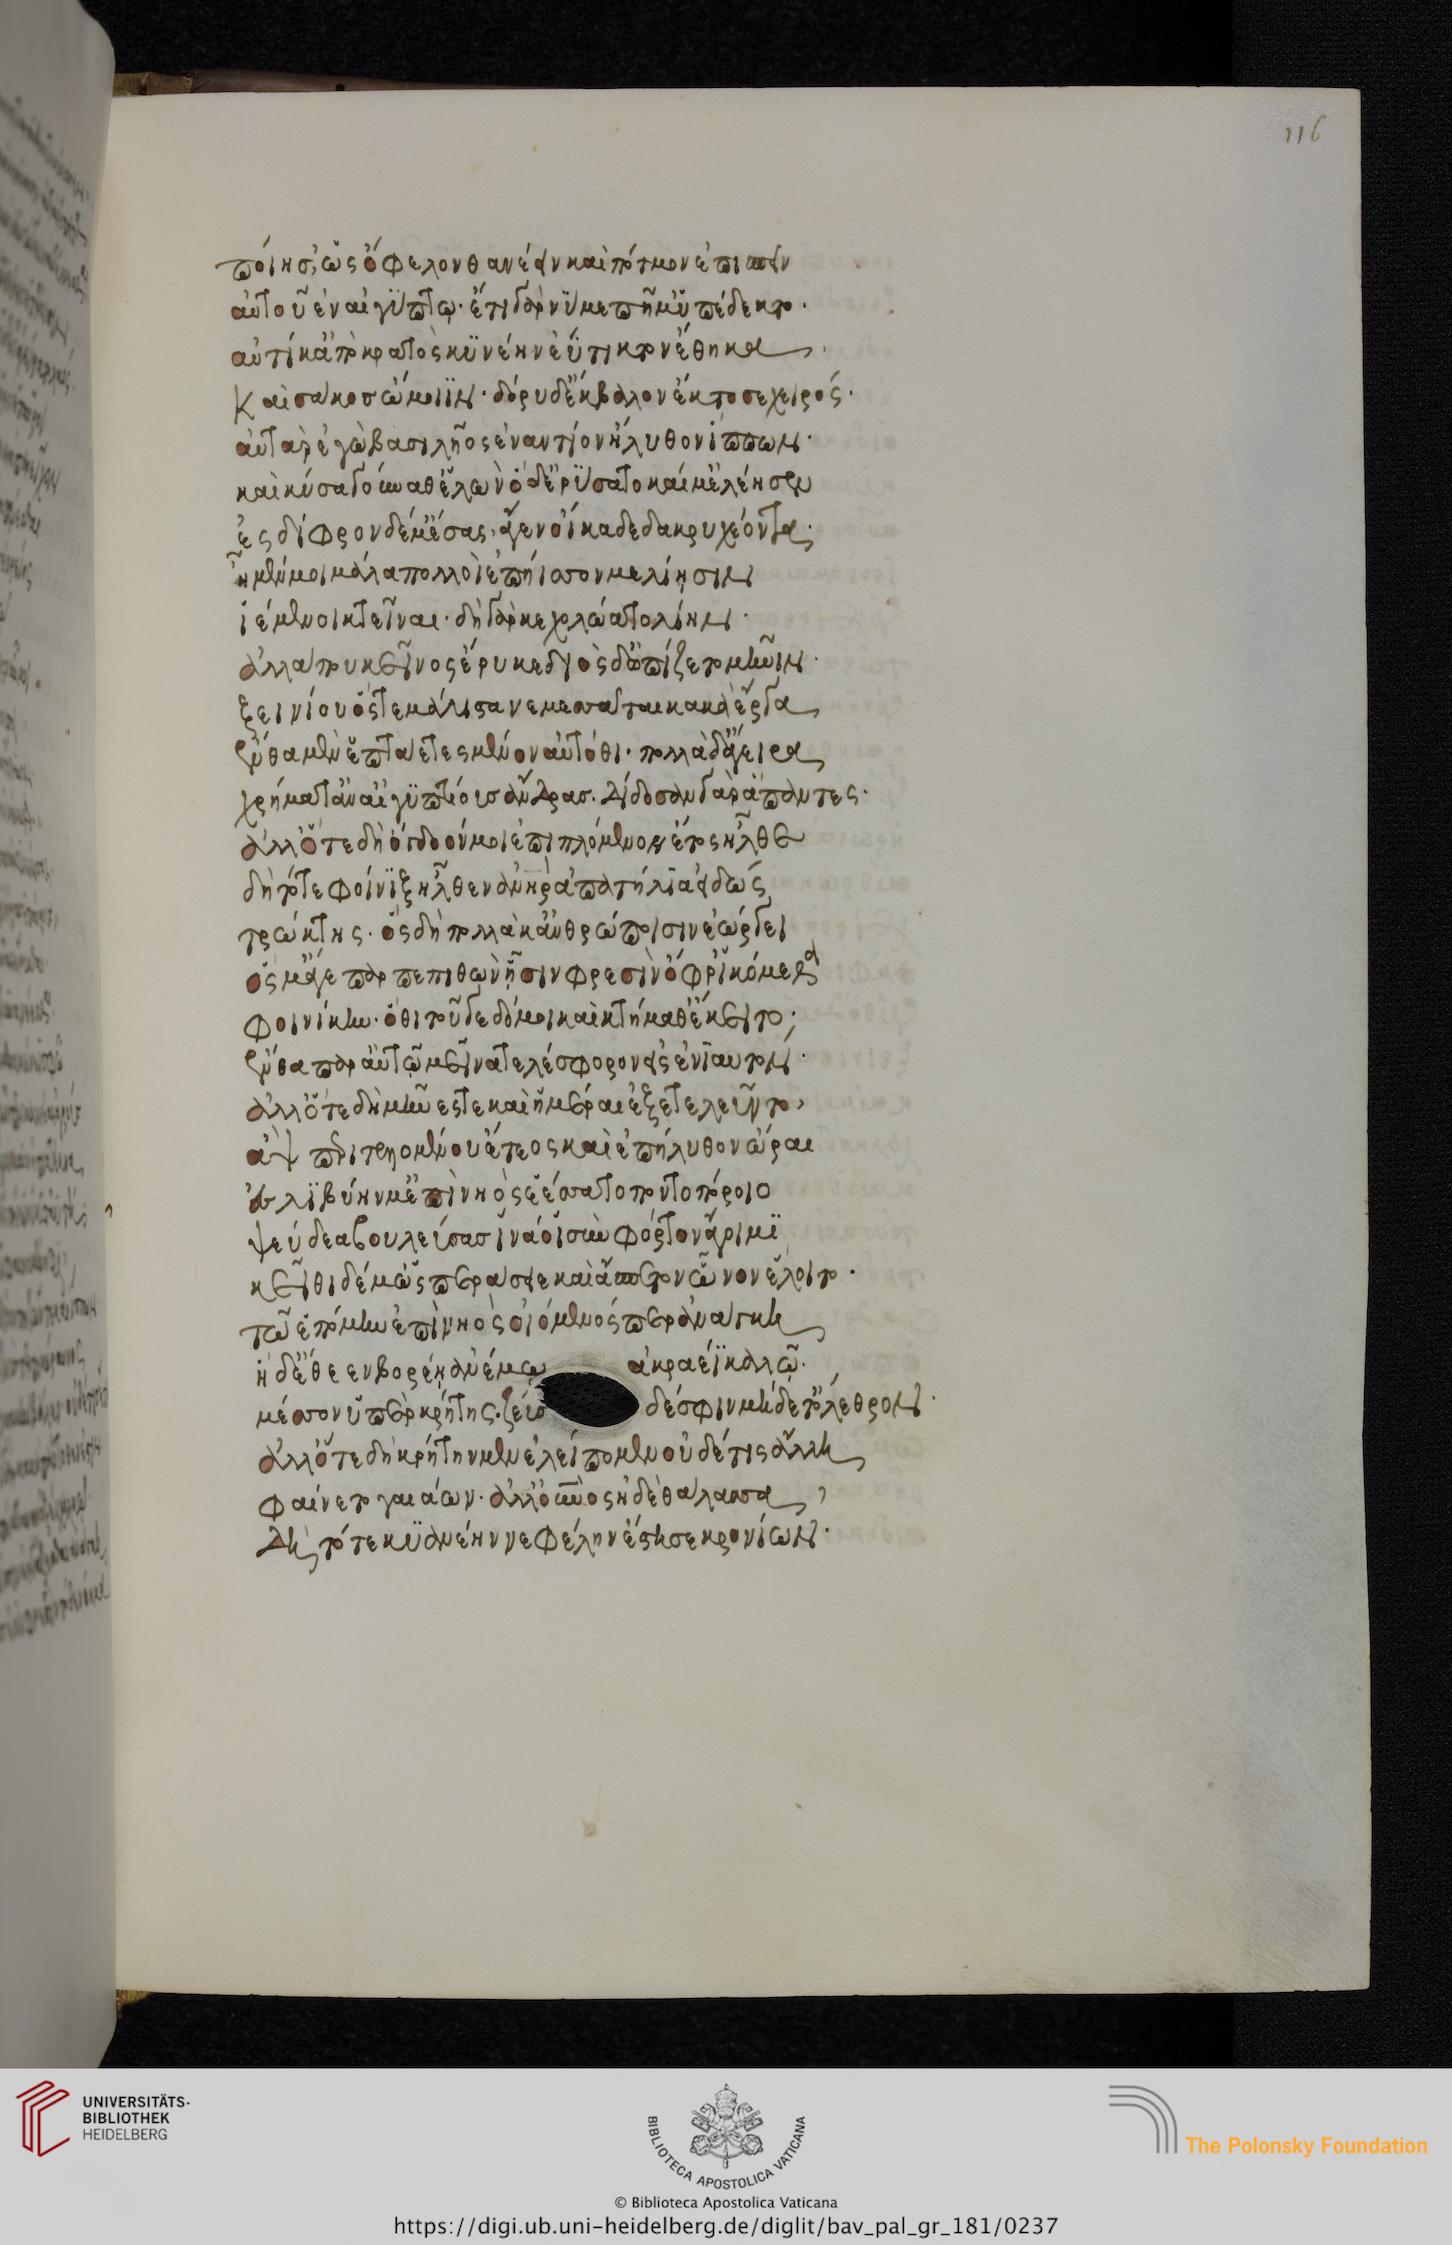 116
ποίησ', ὡς ὄφελον θανέειν καὶ πότμον ἐπισπεῖν
αὐτοῦ ἐν αἰγύπτω· ἔτι γάρ νύ με πῆμ' ὑπέδεκτο·
αὐτίκ' ἀπὸ κρατὸς κυνέην εὔτυκτον ἔθηκα
καὶ σάκος ὤμοιϊν· δόρυ δ' ἔκβαλον ἔκτοσε χειρός·
αὐτὰρ ἐγὼ βασιλῆος ἐναντίον ἤλυθον ἵππων·
καὶ κύσα γούναθ' ἑλών ὁ δ' ἐρύσατο καί μ' ἐλέησεν
ἐς δίφρον δέ μ' ἕσας, ἄγεν οἴκαδε δακρυχέοντα·
ἦ μέν μοι μάλα πολλοὶ ἐπήισσον μελίῃσιν
ἱέμενοι κτεῖναι· δὴ γὰρ κεχολώατο λίην·
ἀλλ' ἀπὸ κεῖνος ἔρυκε διὸς δ' ὠπίζετο μῆνιν·
ξεινίου ὅς τε μάλιστα νεμεσσᾶται κακὰ ἔργα
ἔνθα μὲν ἑπτάετες μένον αὐτόθι· πολλὰ δ' ἄγειρα
χρήματ' ἀν' αἰγυπτίους ἄνδρας· δίδοσαν γὰρ ἅπαντες·
ἀλλ' ὅτε δὴ ὄγδοόν μοι ἐπιπλόμενον ἔτος ἦλθε
δὴ τότε φοίνιξ ἦλθεν ἀνὴρ ἀπατήλια εἰδώς
τρώκτης· ὃς δὴ πολλὰ κάκ' ἀνθρώποισιν ἐώργει
ὅς μ' ἄγε παρπεπιθὼν ᾗσιν φρεσὶν ὄφρ' ἱκόμεσθα
φοινίκην· ὅθι τοῦ γε δόμοι καὶ κτήματ' ἔκειτο·
ἔνθα παρ' αὐτῷ μεῖνα τελέσφορον εἰς ἐνιαυτόν·
ἀλλ' ὅτε δὴ μῆνές τε καὶ ἡμέραι ἐξετελεῦντο,
ἂψ περιτελλομένου ἔτεος καὶ ἐπήλυθον ὧραι
ἐς λιβύην μ' ἐπὶ νηὸς ἐέσσατο ποντοπόροιο
ψεύδεα βουλεύσας ἵνα οἱ σὺν φόρτον ἄγοιμι
κεῖθι δέ μ' ὡς περάσειε καὶ ἄσπετον ὦνον ἕλοιτο·
τῷ ἑπόμην ἐπὶ νηὸς ὀιόμενός περ ἀνάγκῃ
ἡ δ' ἔθεεν βορέῃ ἀνέμω ἀκραέϊ καλῷ·
μέσσον ὑπὲρ κρήτης· ζεὺς δέ σφιν μήδετ' ὄλεθρον·
ἀλλ' ὅτε δὴ κρήτην μὲν ἐλείπομεν οὐδέ τις ἄλλη
φαίνετο γαιάων· ἀλλ' οὐρανὸς ἠδὲ θάλασσα,
δὴ τότε κυανέην νεφέλην ἔστησε κρονίων·
UNIVERSITÄTS-
BIBLIOTHEK
HEIDELBERG
BIBLIOTECA APOSTOLICA VATICANA
The Polonsky Foundation
© Biblioteca Apostolica Vaticana
https://digi.ub.uni-heidelberg.de/diglit/bav_pal_gr_181/0237